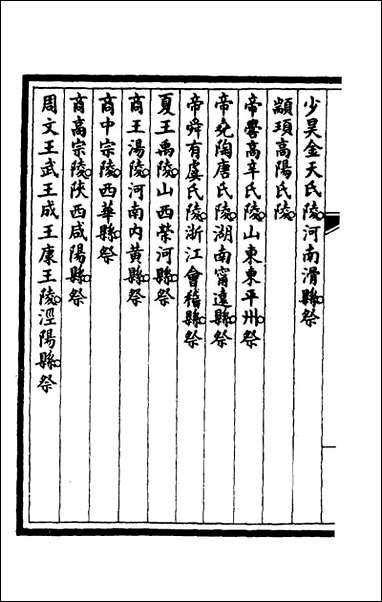 少昊金天氏陵河南滑縣祭
顓頊高陽氏陵
帝嚳高辛氏陵山東東平州祭
帝堯陶唐氏陵湖南甯遠縣祭
帝舜有虞氏陵浙江會稽縣祭
夏王禹陵山西榮河縣祭
商王湯陵河南內黃縣祭
商中宗陵西華縣祭
商高宗陵陜西咸陽縣祭
周文王武王成王康王陵涇陽縣祭